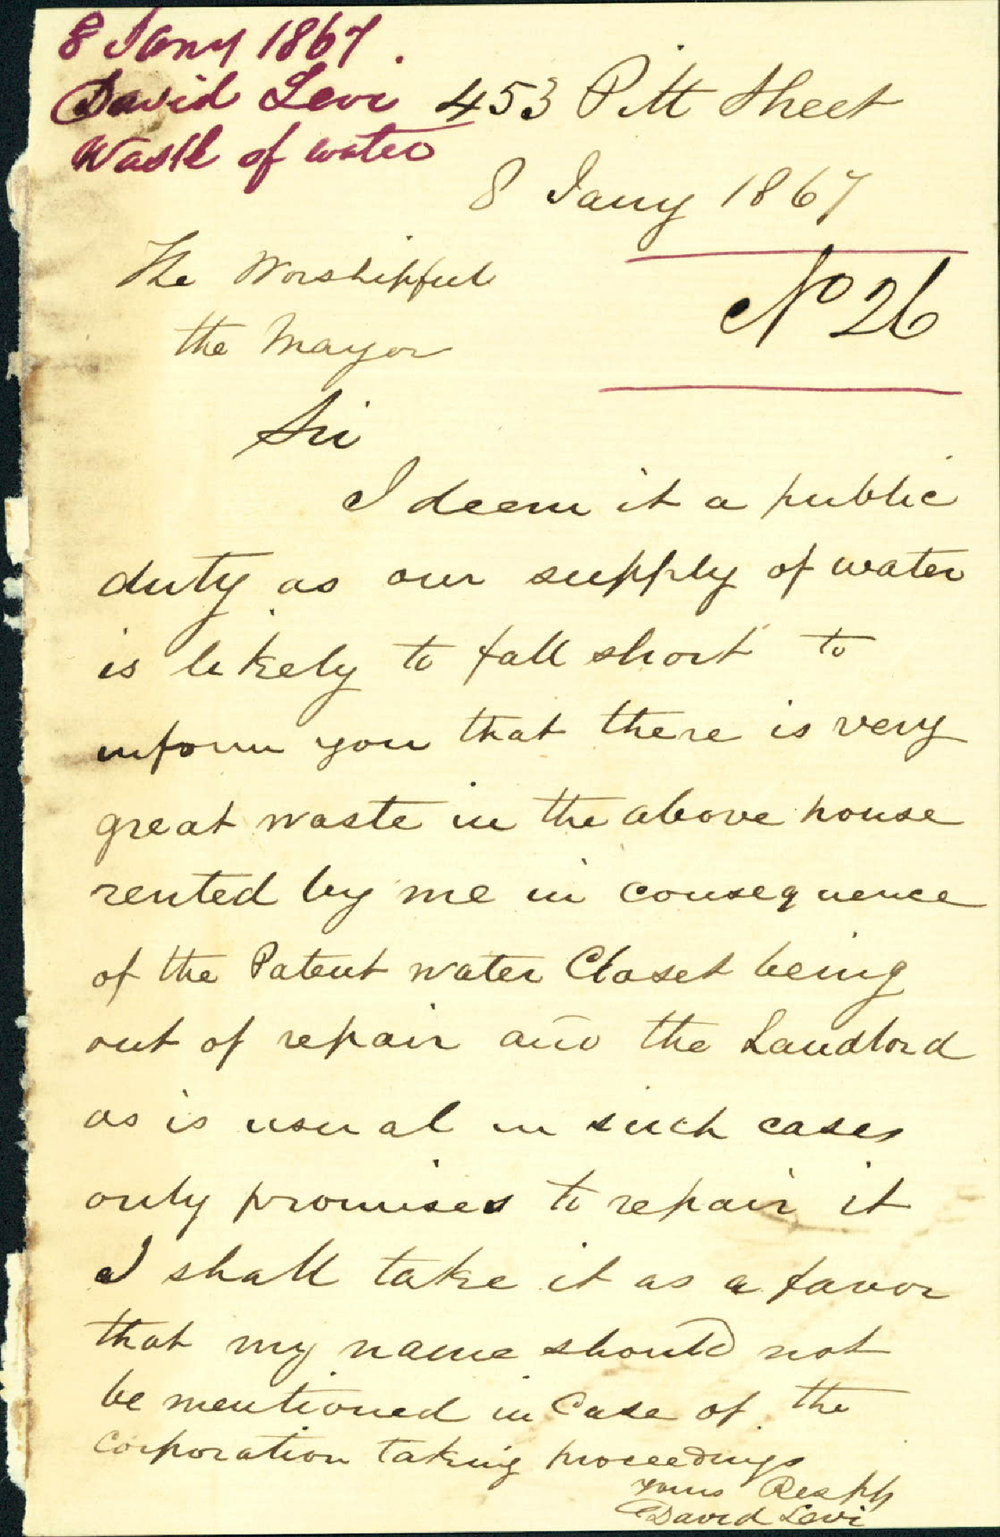 8 Jany 1867.
David Levi
Waste of water
453 Pitt Street
8 Jany 1867
No 26
The Worshipful
the Mayor
Sir
I deem it a public
duty as our supply of water
is likely to fall short to
inform you that there is very
great waste in the above house
rented by me in consequence
of the Patent water Closet being
out of repair and the Landlord
as is usual in such cases
only promises to repair it
I shall take it as a favor
that my name should not
be mentioned in Case of the
corporation taking proceedings
Yours Resply
David Levi